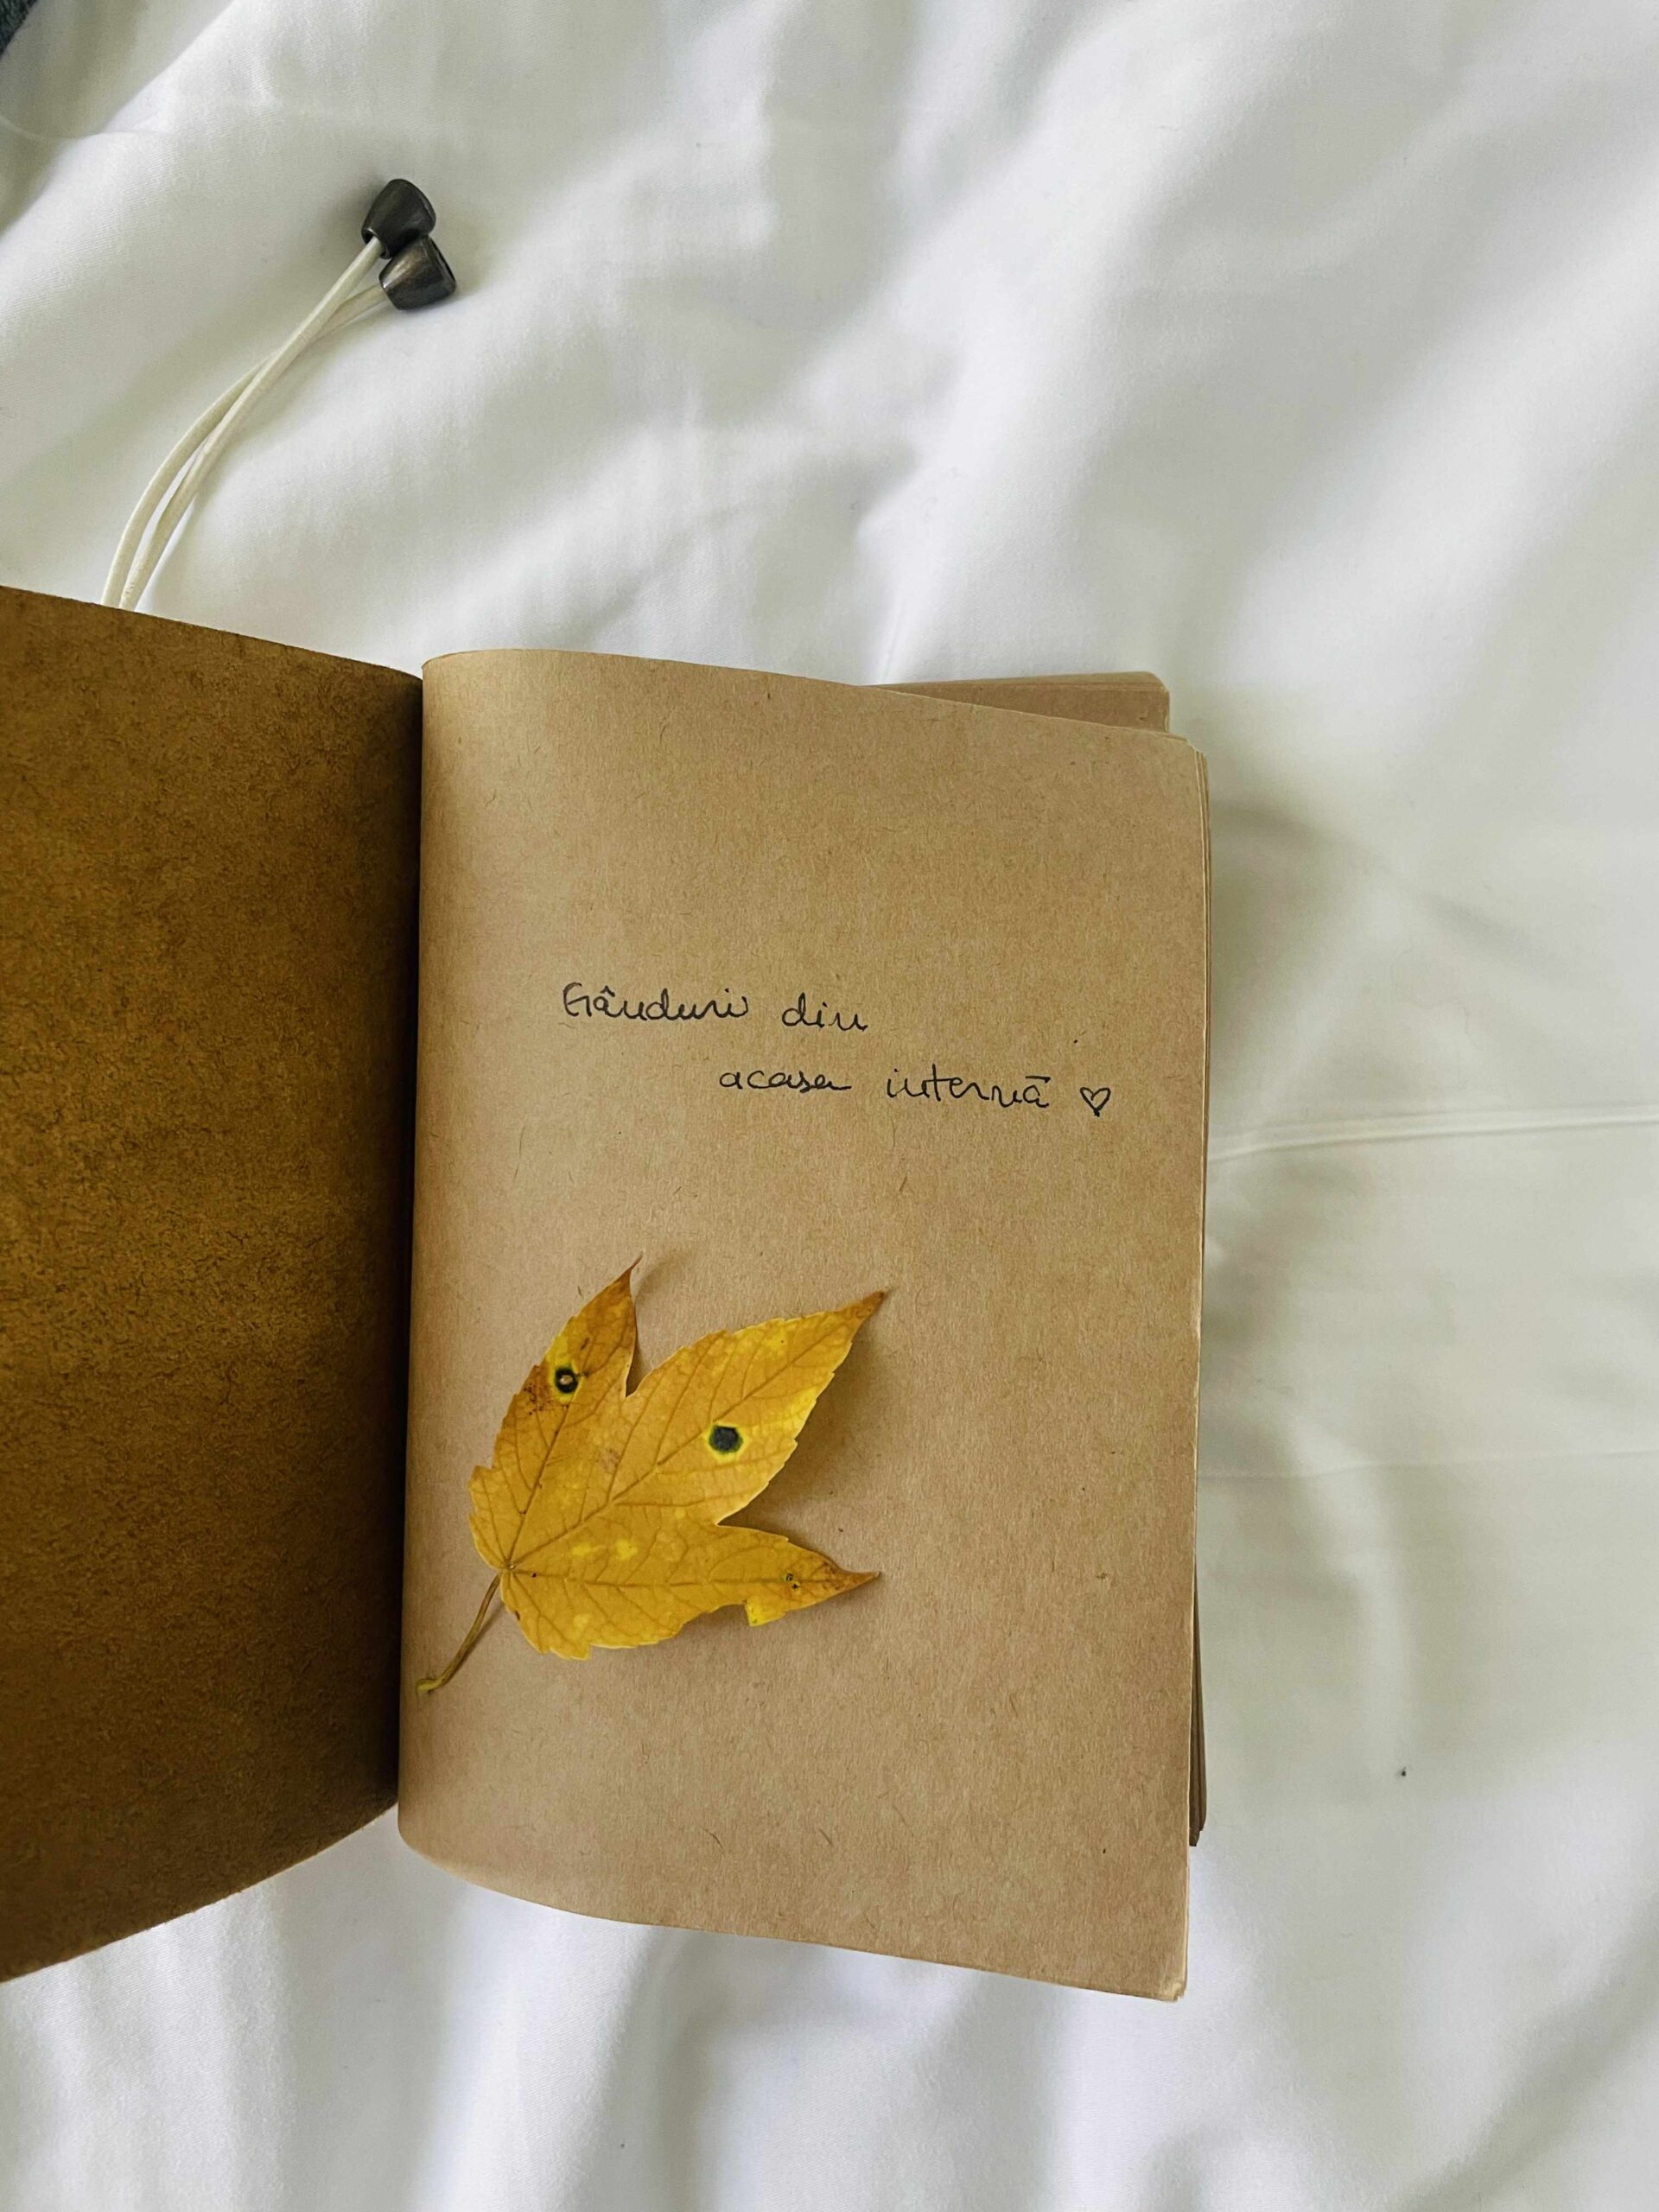 Gânduri din
acasa internă ♡